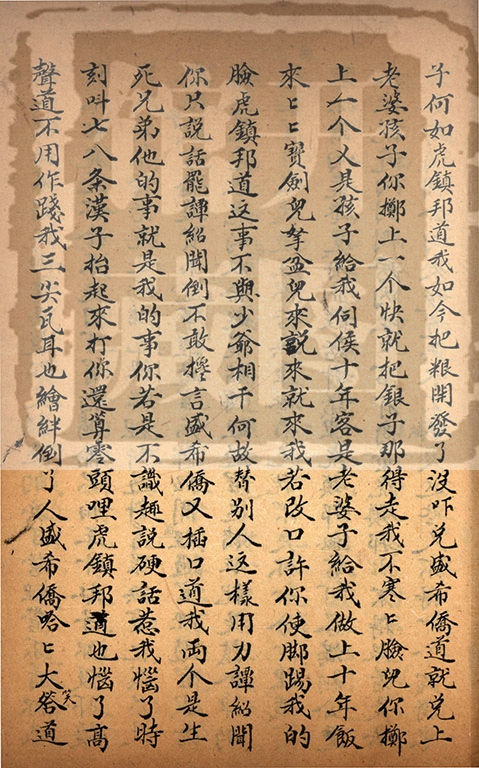 子何如虎鎮邦道我如今把粮開發了沒吓兑盛希僑道就兑上
老婆孩子你擲上一个快就把銀子那得走我不寒〻臉兒你擲
上一个乂是孩子給我伺侯十年客是老婆子給我做上十年飯
來〻〻寶劍兒拏盆兒來説來就來我若改口許你使脚踢我的
臉虎鎮邦道这事不與少爺相干何故替别人这樣用力譚紹聞
你只説話罷譚紹聞倒不敢搀言盛希僑又插口道我両个是生
死兄弟他的事就是我的事你若是不識趣説硬話惹我惱了時
刻叫七八条漢子抬起來打你還算零頭哩虎鎮邦道也惱了高
聲道不用作踐我三尖瓦耳也繪絆倒了人盛希僑哈〻大笑答道